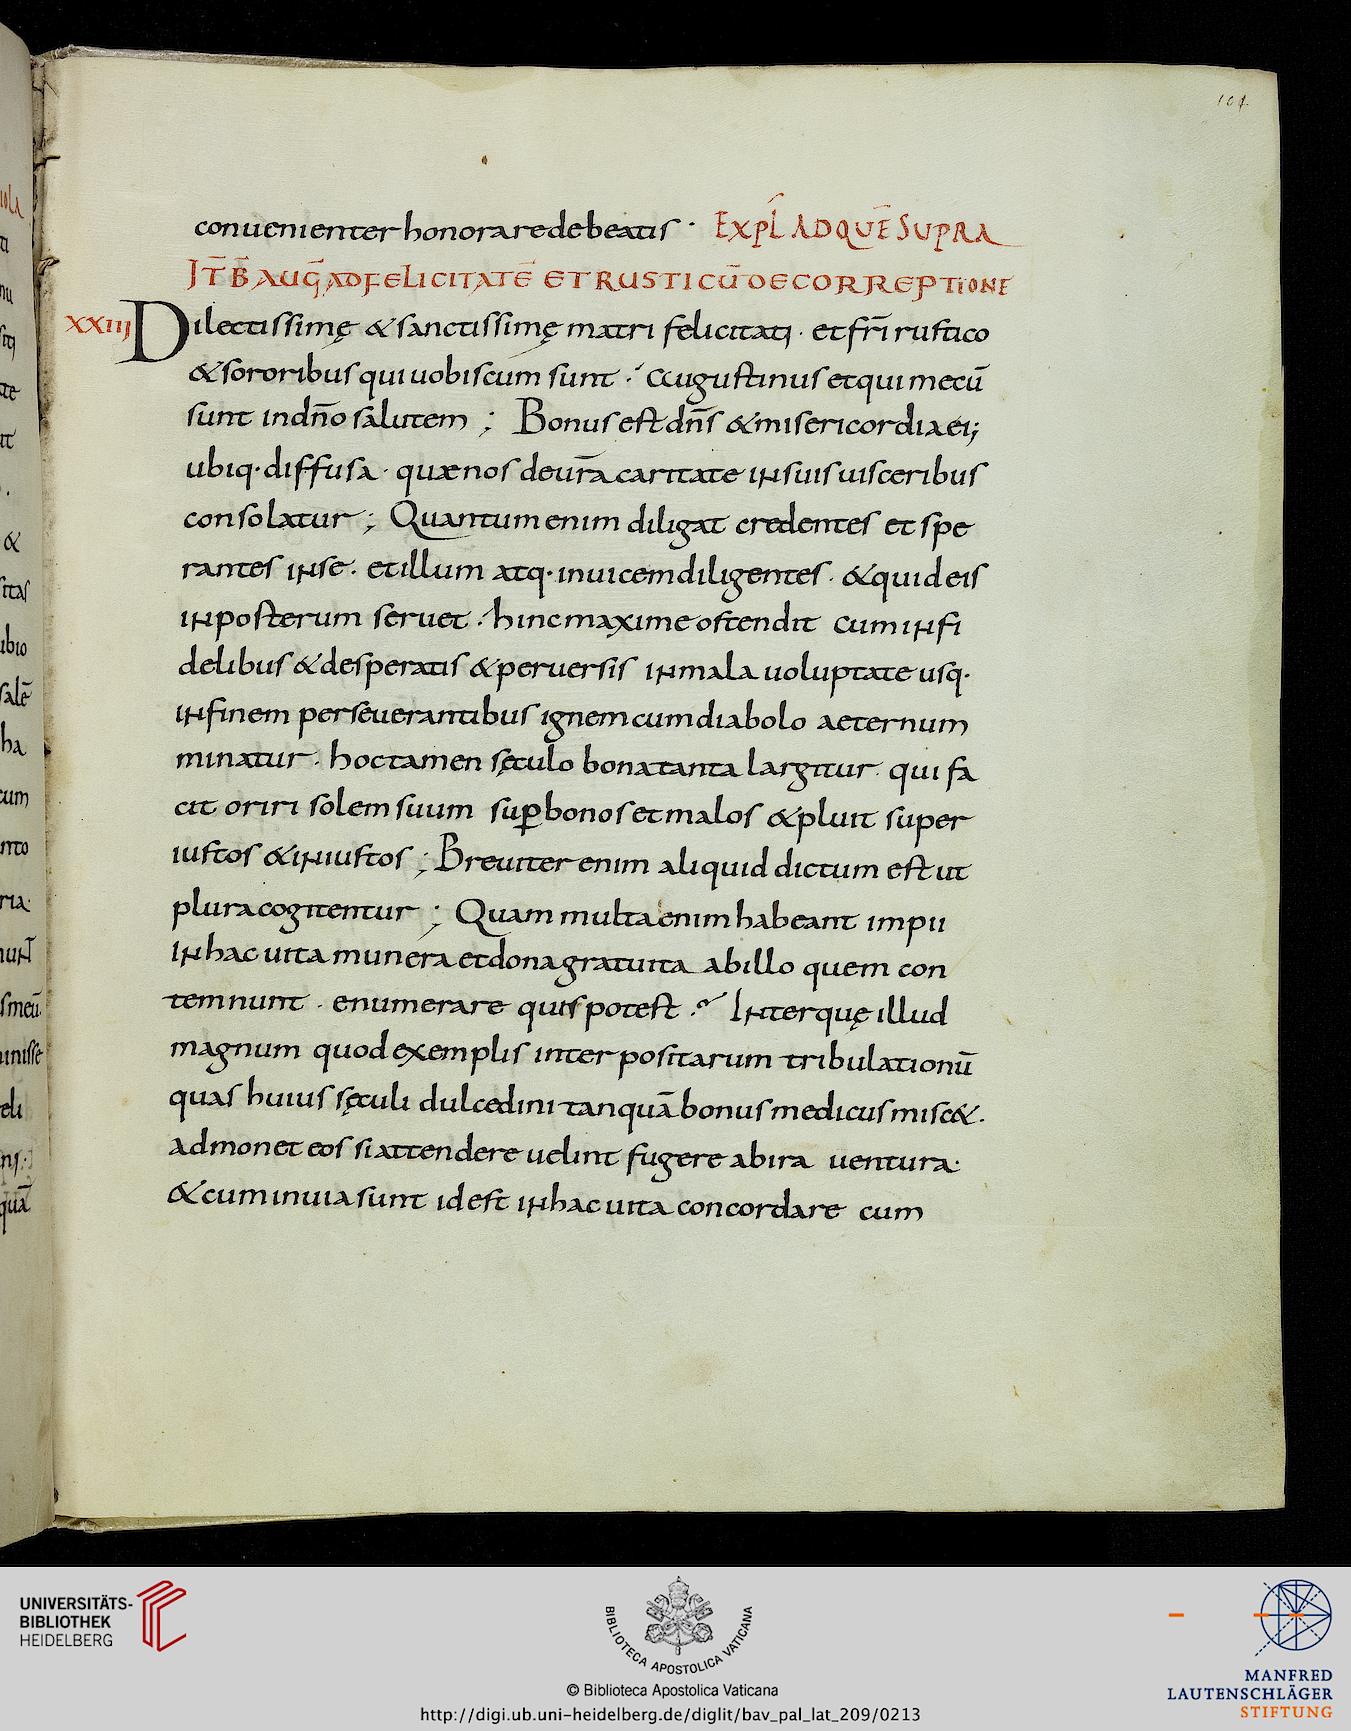 104
conuenienter honorare debeatis · EXPL̄ AD QUĒ SUPRA
IT̄ B̄ AUḠ AD FELICITATĒ ET RUSTICŪ DE CORREPTIONE
XXIII Dilectissimę & sanctissimę matri felicitati · et fr̄i rustico
& sororibus qui uobiscum sunt · Augustinus et qui mecū
sunt in dn̄o salutem ; Bonus est dn̄s & misericordia ei;
ubiq· diffusa · quae nos de ur̄a caritate in suis uisceribus
consolatur ; Quantum enim diligat credentes et spe
rantes in se · et illum atq· inuicem diligentes · & quid eis
in posterum seruet · hinc maxime ostendit cum infi
delibus & desperatis & peruersis in mala uoluptate usq·
in finem perseuerantibus ignem cum diabolo aeternum
minatur · hoc tamen sęculo bona tanta largitur · qui fa
cit oriri solem suum suꝑ bonos et malos & pluit super
iustos & iniustos ; Breuiter enim aliquid dictum est ut
plura cogitentur ; Quam multa enim habeant impii
In hac uita munera et dona gratuita ab illo quem con
temnunt · enumerare quis potest ? Inter quę illud
magnum quod exemplis inter positarum tribulationū
quas huius sęculi dulcedini tanquā bonus medicus misc& ·
admonet eos si attendere uelint fugere ab ira uentura ·
& cum in uia sunt id est in hac uita concordare cum
iola
ti
nu
siti
te
at
&
sitas
ubio
salē
ha
cum
nto
ria·
nunt
smeū
unisse
eli
ni·
quā
UNIVERSITÄTS-
BIBLIOTHEK
HEIDELBERG
BIBLIOTECA APOSTOLICA VATICANA
© Biblioteca Apostolica Vaticana
http://digi.ub.uni-heidelberg.de/diglit/bav_pal_lat_209/0213
MANFRED
LAUTENSCHLÄGER
STIFTUNG